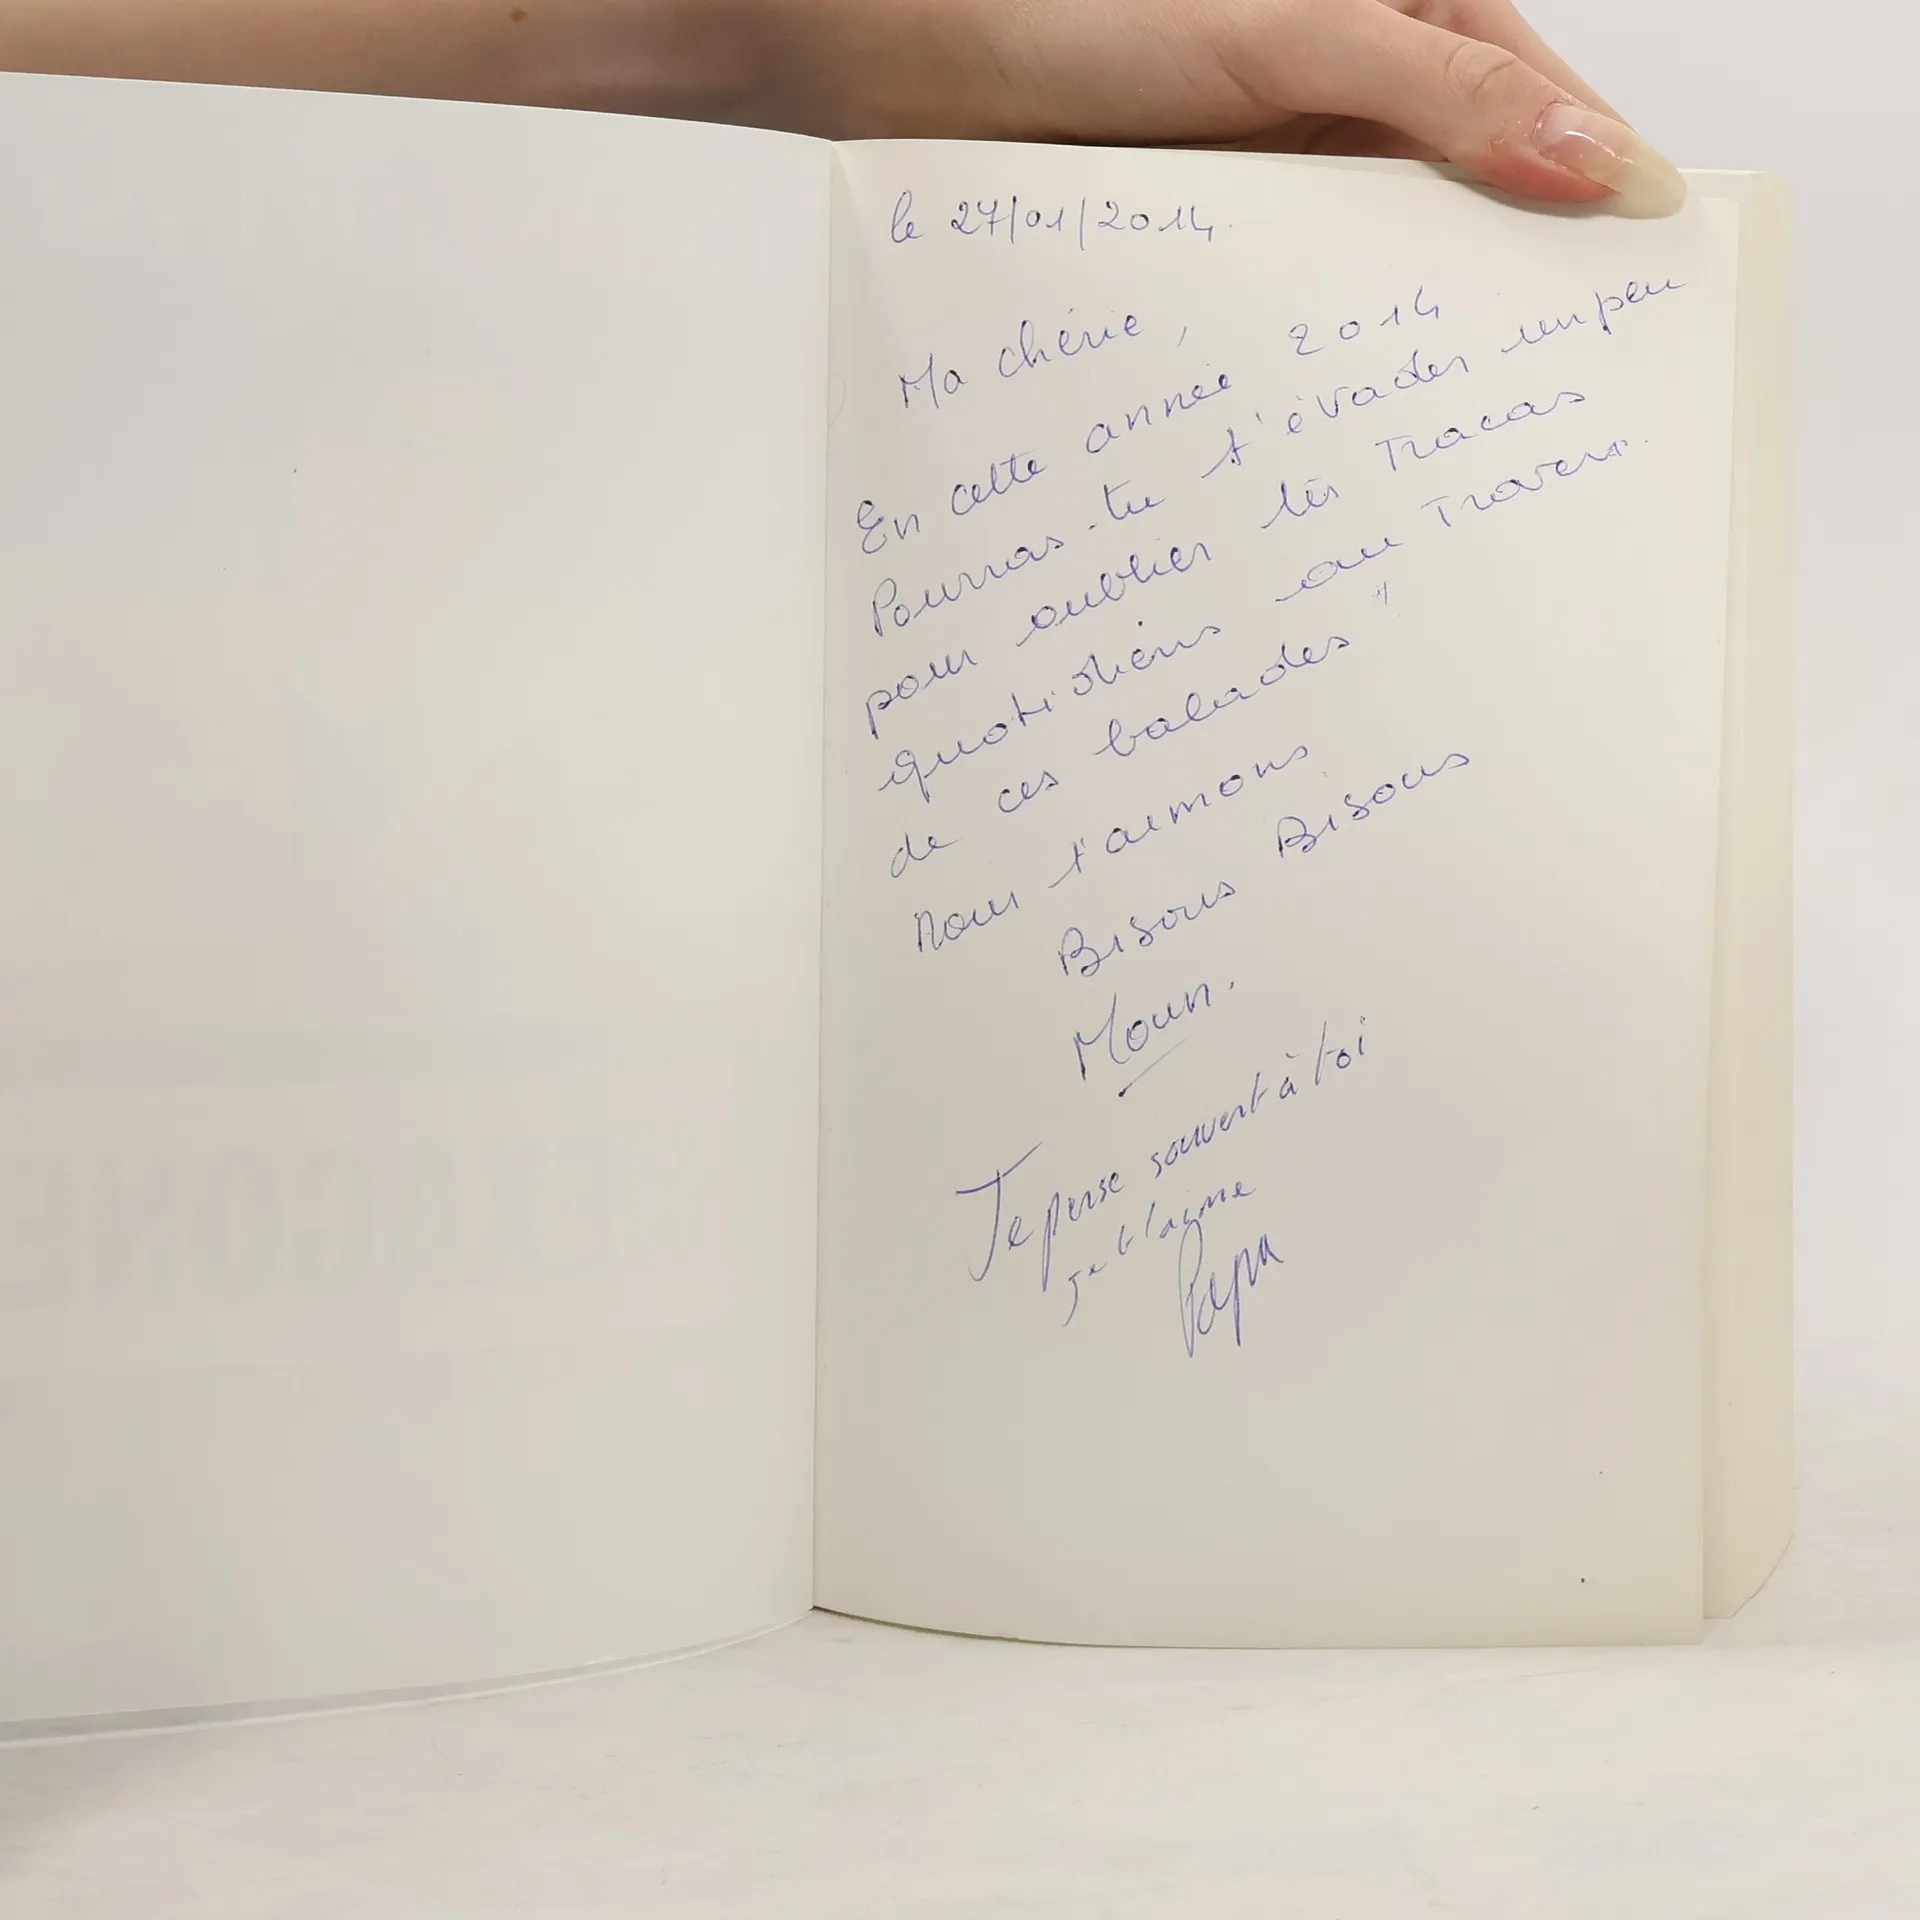 le 27/01/2014.
Ma chérie,
En cette année 2014
Pourras-tu t'évader un peu
pour oublier les tracas
quotidiens au travers
de ces balades"
Nous t'aimons
Bisous Bisous
Moun.
Je pense souvent à toi
Je t'aime
Papa